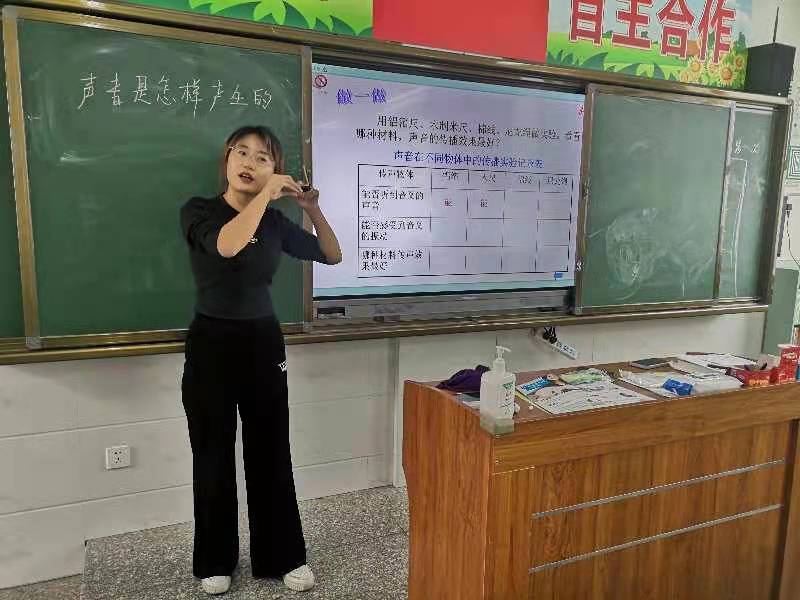 自主合作
声音是怎样产生的
做一做
用铝箔尺、木制米尺、棉线、尼龙绳做实验,看看
哪种材料,声音的传播效果最好?
声音在不同物体中的传播实验记录表
传声物体 木尺
能否听到音叉的
声音
能 能
能否感受到音叉
的振动
哪种材料传声效
果最好